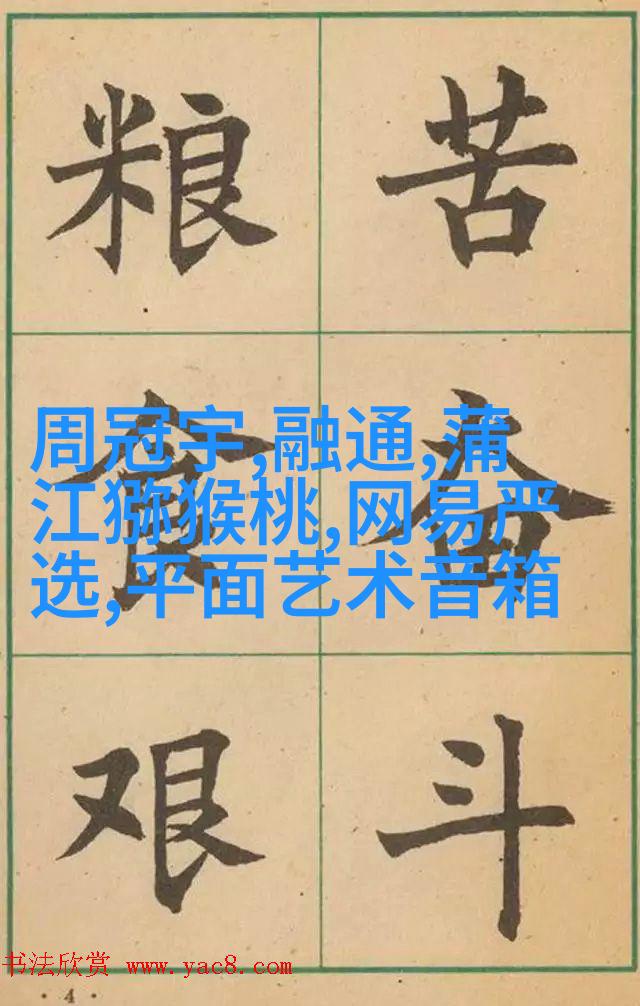 粮 苦
食 奋
艰 斗
周冠宇,融通,蒲
江猕猴桃,网易严
选,平面艺术音箱
书法欣赏 www.yac8.com
· 4 ·